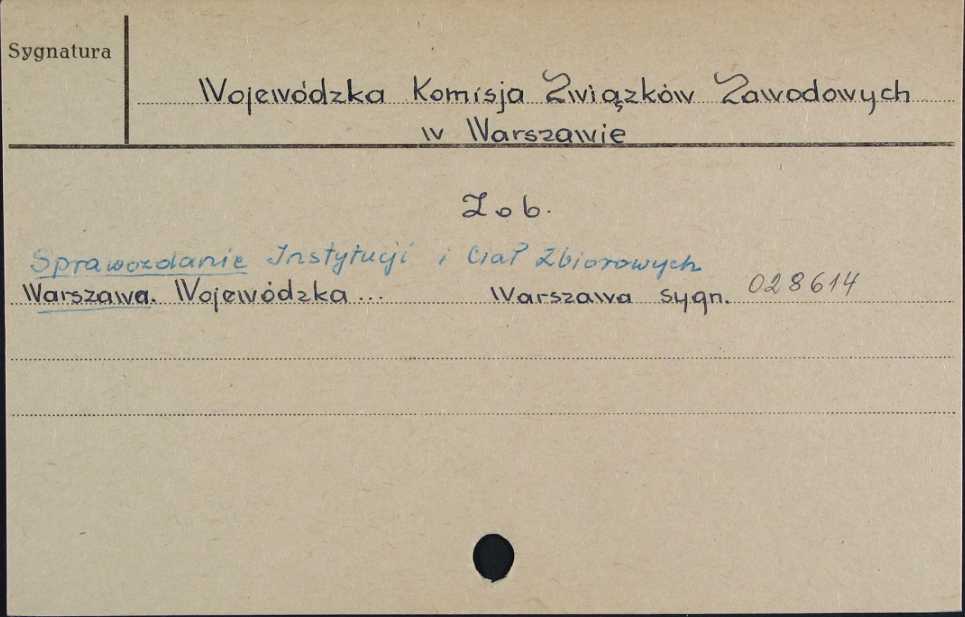 Sygnatura
Wojewódzka Komisja Związków Zawodowych
w Warszawie
Zob.
Sprawozdanie Instytucji i Ciał Zbiorowych
Warszawa. Wojewódzka... Warszawa sygn. 028614